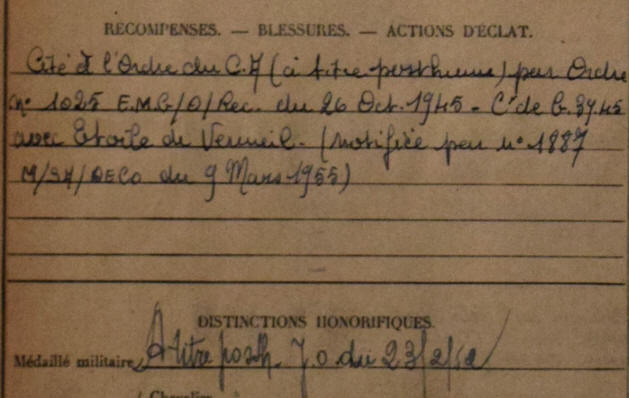 RÉCOMPENSES. — BLESSURES. — ACTIONS D'ÉCLAT.
Cité à l'Ordre du C.A (à titre posthume) par Ordre
n° 1025 E.M.G/O/Rec. du 26 Oct. 1945 - C° de G. 39.45
avec Etoile de Vermeil - (Notifiée par n° 1887
M/SA/DECO du 9 Mars 1955)
DISTINCTIONS HONORIFIQUES.
Médaillé militaire A titre posth. J.O. du 23/2/62
Chevalier